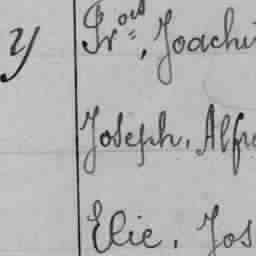 y Frois, Joachi
Joseph, Alfre
Elie, Jos